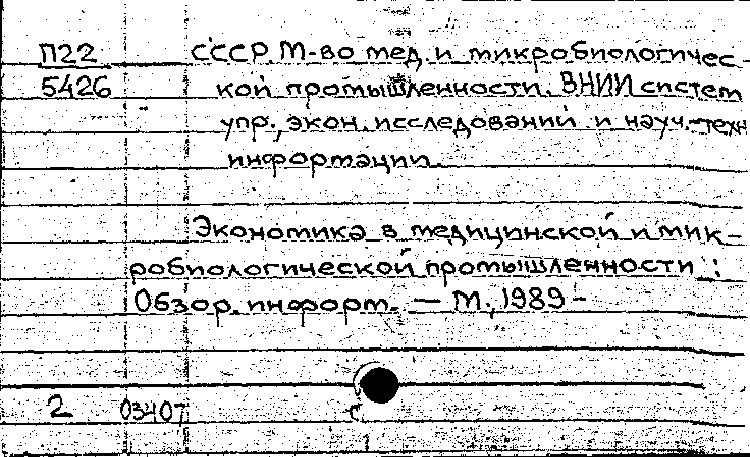 П22 СССР. М-во мед. и микробиологичес-
5426 кой промышленности. ВНИИ систем
упр., экон. исследований и науч.-техн
информации.
Экономика в медицинской и мик-
робиологической промышленности :
Обзор. информ. — М., 1989 -
2 03407